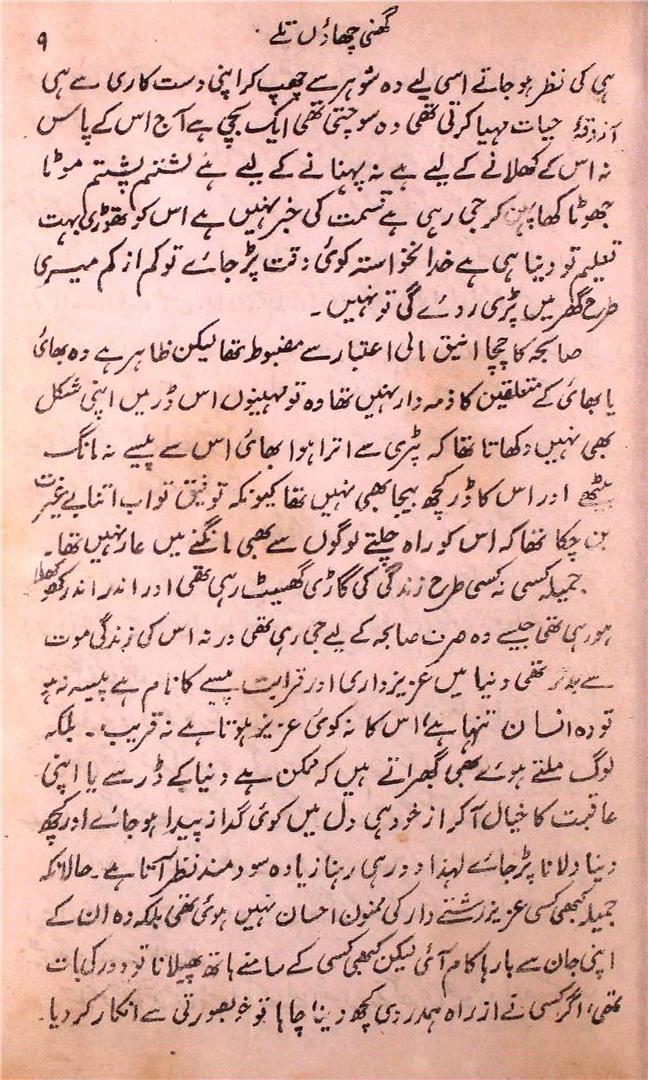 گھنی چھاؤں تلے
۹
ہی کی نظر ہو جاتے اسی لیے وہ شوہر سے چھپ کر اپنی دست کاری سے ہی
آزوقۂ حیات مہیا کرتی تھی وہ سوچتی تھی ایک بچی ہے آج اس کے پاس
نہ اس کے کھلانے کے لیے ہے نہ پہنانے کے لیے ہے لشتم پشتم موٹا
جھوٹا کھا پہن کر جی رہی ہے قسمت کی خبر نہیں ہے اس کو تھوڑی بہت
تعلیم تو دینا ہی ہے خدانخواستہ کوئی وقت پڑ جائے تو کم از کم میری
طرح گھر میں پڑی روئے گی تو نہیں ۔
صابحہ کا چچا انیق مالی اعتبار سے مضبوط تھا لیکن ظاہر ہے وہ بھائی
یا بھائی کے متعلقین کا ذمہ دار نہیں تھا وہ تو مہینوں اس ڈر میں اپنی شکل
بھی نہیں دکھاتا تھا کہ پٹری سے اترا ہوا بھائی اس سے پیسے نہ مانگ
بیٹھے اور اس کا ڈر کچھ بیجا بھی نہیں تھا کیونکہ توفیق تو اب اتنا بے غیرت
بن چکا تھا کہ اس کو راہ چلتے لوگوں سے بھی مانگنے میں عار نہیں تھا ۔
جمیلہ کسی نہ کسی طرح زندگی کی گاڑی گھسیٹ رہی تھی اور اندر اندر کھوکھلی
ہو رہی تھی جیسے وہ صرف صابحہ کے لیے جی رہی تھی ورنہ اس کی زندگی موت
سے بدتر تھی دنیا میں عزیز داری اور قرابت پیسے کا نام ہے پیسہ نہ ہو
تو وہ انسان تنہا ہے، اس کا نہ کوئی عزیز ہوتا ہے نہ قریب ۔ بلکہ
لوگ ملتے ہوئے بھی گھبراتے ہیں کہ ممکن ہے دنیا کے ڈر سے یا اپنی
عاقبت کا خیال آ کر از خود ہی دل میں کوئی گداز پیدا ہو جائے اور کچھ
دینا دلانا پڑ جائے لہذا دور ہی رہنا زیادہ سود مند نظر آتا ہے ۔ حالانکہ
جمیلہ کبھی کسی عزیز رشتے دار کی ممنون احسان نہیں ہوئی تھی بلکہ وہ ان کے
اپنی جان سے بارہا کام آئی لیکن کبھی کسی کے سامنے ہاتھ پھیلانا تو دور کی بات
تھی، اگر کسی نے از راہ ہمدردی کچھ دینا چاہا تو خوبصورتی سے انکار کر دیا ۔